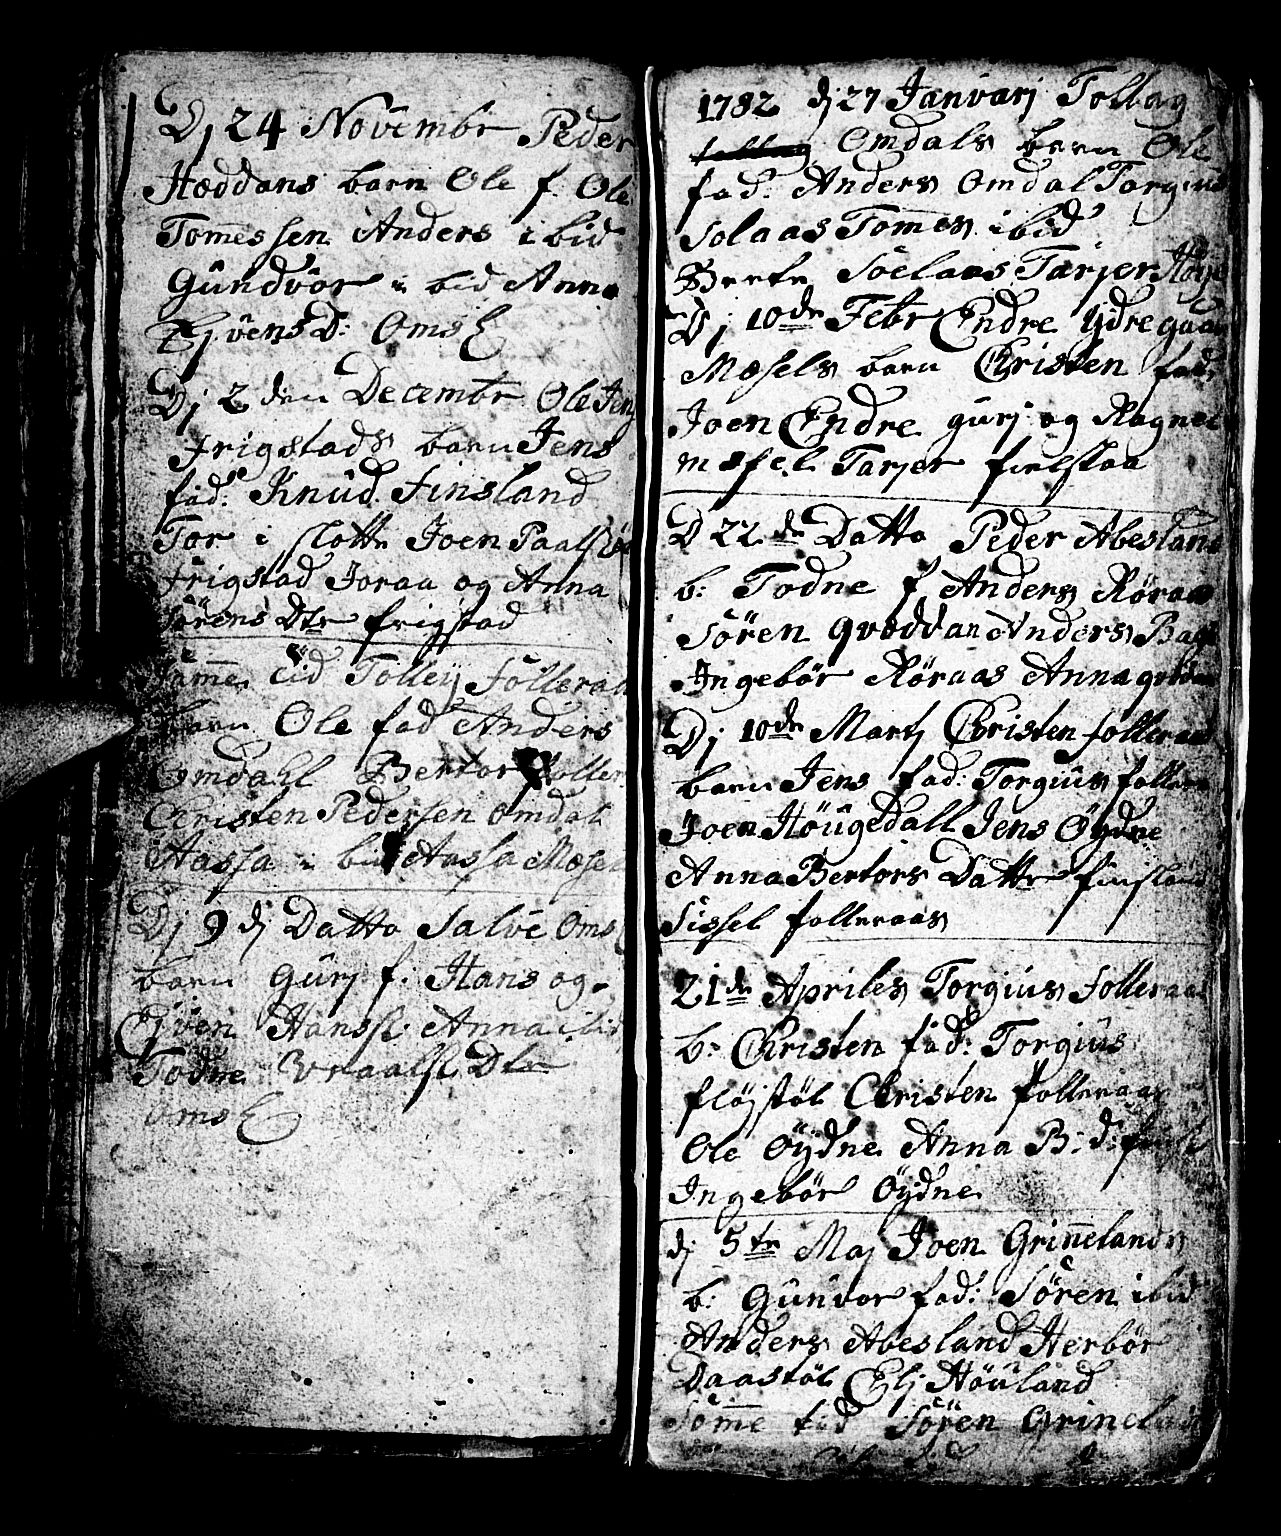 Dj 24 Novembr Peder
Hæddans barn Ole f. Ole
Tomessen Anders ibid
Gundvör ibid Anna
Ejvens D: Oms E
Dj 2 den Decembr Ole Jens
frigstads barn Jens
fad: Knud Finsland
Tor i slotte Joen Paals
frigstad Joraa og Anna
Sörens Dtr frigstad
Samme tid Tollej Folleraas
barn Ole fad Anders
Omdahl Bertor Foller
Christen Pedersen Omdal
Aassa i bid Aassa Mæsel
Dj 9 dj Datto Salve Oms
barn Gurj f. Hans og
Ejven Hanss: Anna ibid
Todne Vraals Dtr
Oms E
1782 dj 27 Januarj Tollag
Omdals barn Ole
fad: Anders Omdal Torgius
Solaas Tomes ibid
Berte Soelaas Tarjer Höye
Dj 10de Febr Endre Ydregaar
Mæsels barn Christen fad:
Joen Endre gurj og Ragnel
mæsel Tarjer fielstaa
D 22de Datto Peder Abesland
b: Todne f Anders Röraas
Sören qvoddan Anders Bag
Ingebör Röraas Anna
Dj 10de Martj Christen folleraas
barn Jens fad: Torgius follera
Joen Höugedall Jens Öydne
Anna Bertors Datter finsland
Sissel folleraas
21de Apriles Torgius Folleraas
b: Christen fad: Torgius
flöjstöl Christen folleraas
Ole Öydne Anna B: d:
Ingebör Öydne
dj 5te Maj Joen Grinnelands
b: Gunvor fad: Sören ibid
Anders Abesland Herbör
Daastöl Elj Höuland
Somme tid Sören Grineland